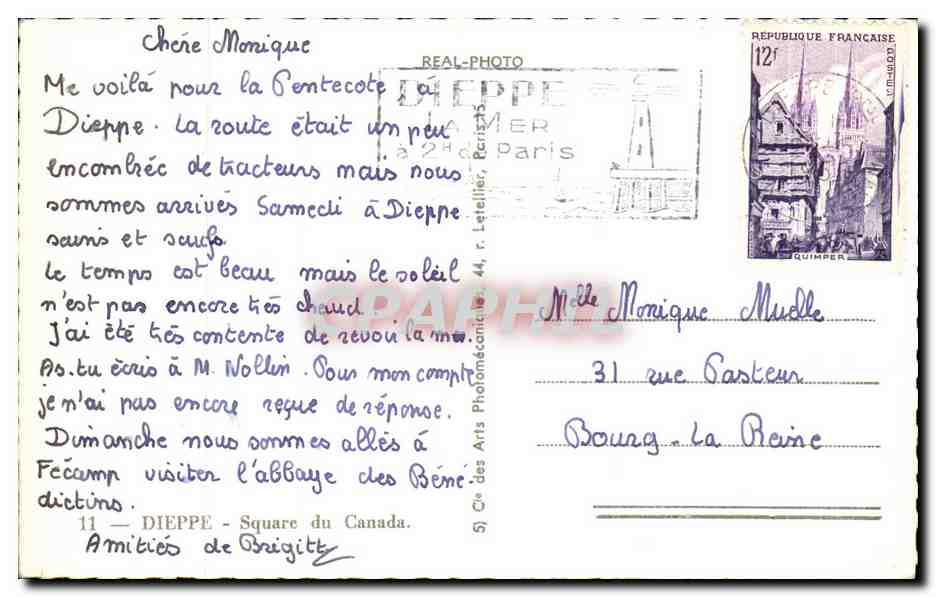 Chére Monique
Me voilá pour la Pentecote á
Dieppe. La route était un peu
encombrée de tracteurs mais nous
sommes arrivés Samedi á Dieppe
sains et saufs
Le temps est beau mais le soleil
n'est pas encore trés chaud
J'ai été trés contente de revoir la mer.
As.tu écris á M. Nollin. Pour mon compte
je n'ai pas encore reçue de réponse.
Dimanche nous sommes allés á
Fécamp visiter l'abbaye des Béné-
dictins.
11 — DIEPPE - Square du Canada.
Amitiés de Brigitte
REAL-PHOTO
DIEPPE
LA MER
à 2H de Paris
5) Cie des Arts Photomécaniques, 44, r. Letellier, Paris-15
CPAPHIL
RÉPUBLIQUE FRANÇAISE
12F
POSTES
QUIMPER
Melle Monique Muelle
31 rue Pasteur
Bourg-La Reine